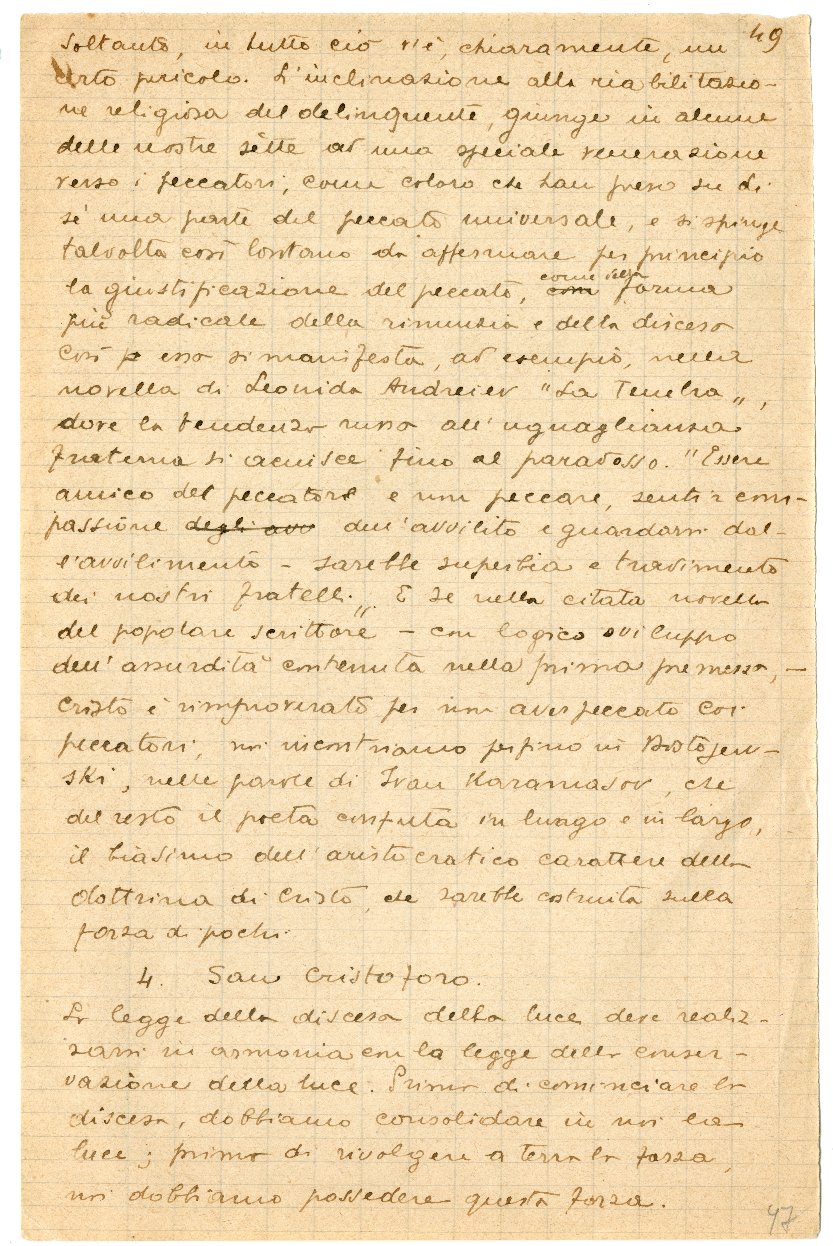 49
Soltanto, in tutto ciò v'è, chiaramente, un
certo pericolo. L'inclinazione alla riabilitazio-
ne religiosa del delinquente, giunge in alcune
delle nostre sètte ad una speciale venerazione
verso i peccatori, come coloro che han preso su di
sé una parte del peccato universale, e si spinge
talvolta così lontano da affermare per principio
la giustificazione del peccato, com come della forma
più radicale della rinunzia e della discesa
Così p esso si manifesta, ad esempio, nella
novella di Leonida Andreiev "La Tenebra",
dove la tendenza russa all'uguaglianza
fraterna si acuisce fino al paradosso. "Essere
amico del peccatore e non peccare, sentir com-
passione degli avv dell'avvilito e guardarsi dal-
l'avvilimento - sarebbe superbia e tradimento
dei nostri fratelli." E se nella citata novella
del popolare scrittore - con logico sviluppo
dell'assurdità contenuta nella prima premessa, -
Cristo è rimproverato per non aver peccato coi
peccatori, noi incontriamo perfino in Dostojew-
ski, nelle parole di Ivan Karamasov, che
del resto il poeta confuta in lungo e in largo,
il biasimo dell'aristocratico carattere della
dottrina di Cristo, che sarebbe costruita sulla
forza di pochi.
4. San Cristoforo.
La legge della discesa della luce deve realiz-
zarsi in armonia con la legge della conser-
vazione della luce. Prima di cominciare la
discesa, dobbiamo consolidare in noi la
luce; prima di rivolgere a terra la forza,
noi dobbiamo possedere questa forza.
47